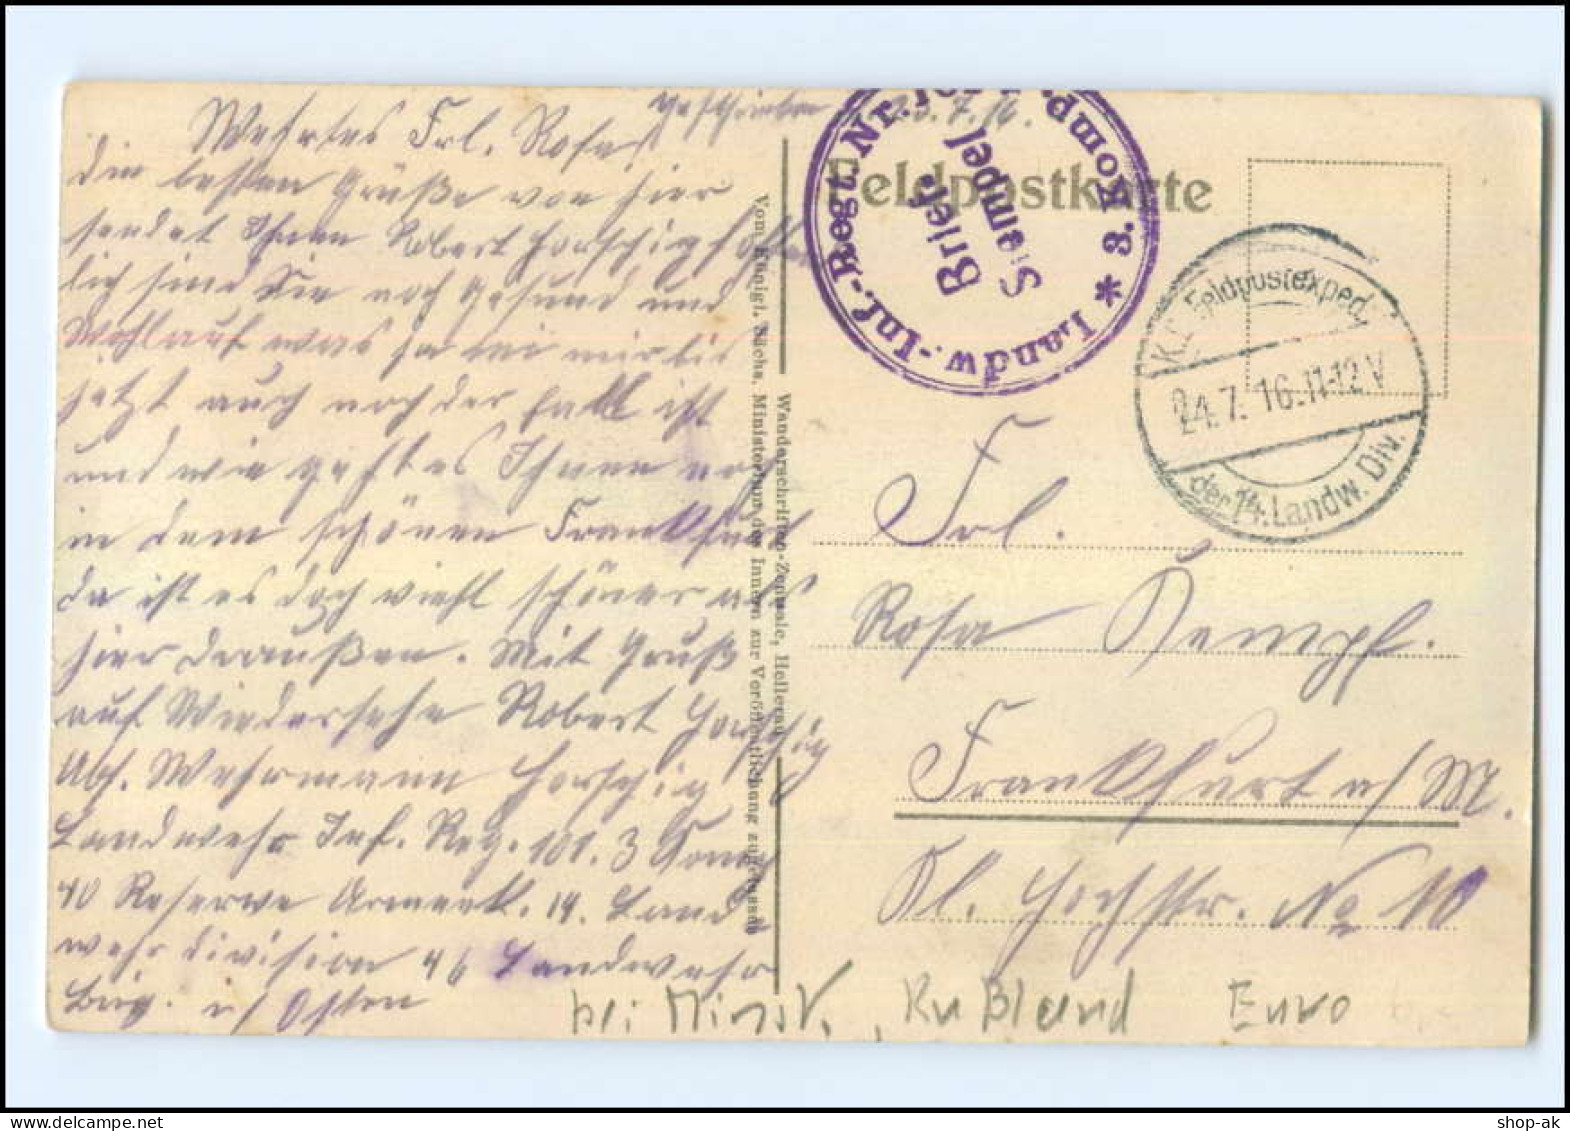 geschrieben 23.7.16.
Wehrtes Frl. Rosa
die besten Grüße von hier
sendet Ihnen Robert Horschig
lich sind Sie noch gesund und
Wohlauf was ja bei mir bis
jetzt auch noch der Fall ist
und wie geht es Ihnen noch
in dem schönen Frankfurt
da ist es doch viehl schöner als
hier draußen. Mit Gruß
auf Wiedersehn Robert Horschig
Abs. Wehrmann Horschig
Landwehr Inf. Reg. 101. 3 Komp
40 Reserwe 14. Land
wehrdivision 46 Landwehr
Brig. i/ Osten
Vom Königl. Sächs. Ministerium des Innern zur Veröffentlichung zugelassen
Wanderschriften-Zentrale, Hellerau
Feldpostkarte
Landw.-Inf.-Regt. Nr. 101 * 3. Komp.
Brief-
Stempel
K.D. Feldpostexped.
24.7.16.11-12V
der 14. Landw. Div.
Frl.
Rosa Kempf.
Frankfurt a/M.
Kl. Hochstr. No 10
bei Minsk, Rußland Euro
shop-ak